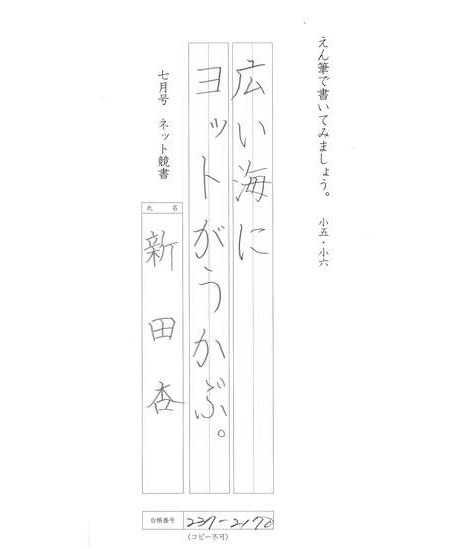 えん筆で書いてみましょう。 小五・小六
広い海に
ヨットがうかぶ。
七月号 ネット競書
氏名
新田杏
台帳番号 237-2170
〈コピー不可〉